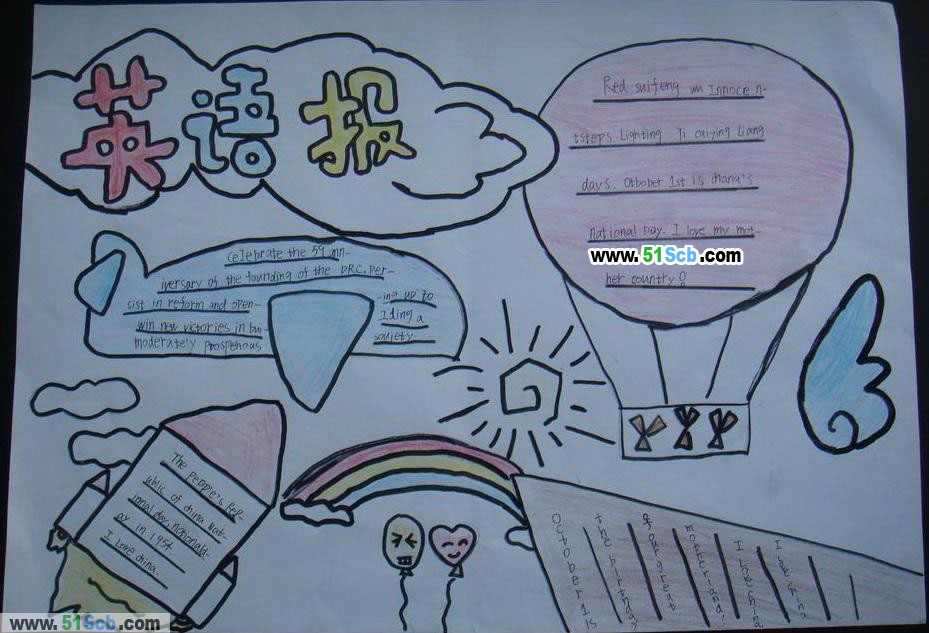 英语报
Red suifeng vm Innocen-
tsteps. Lighting Yi caiying Liang
days. Otbobet 1st is chana's
national Day. I love my mot-
www.51Scb.com
her country!
Celebrate the 59 ann-
iversary of the founding of the PRC. Per-
sist in reform and open-
-ing up to
win new victories in bui-
lding a
moderately prospenous
souiety
The people's Rep-
ublic of china Nat-
ional day. Nationald-
ay in 1954.
I Love china.
October 1 is
the birthday
of our great
motherland!
I love china
I love china
www.51Scb.com